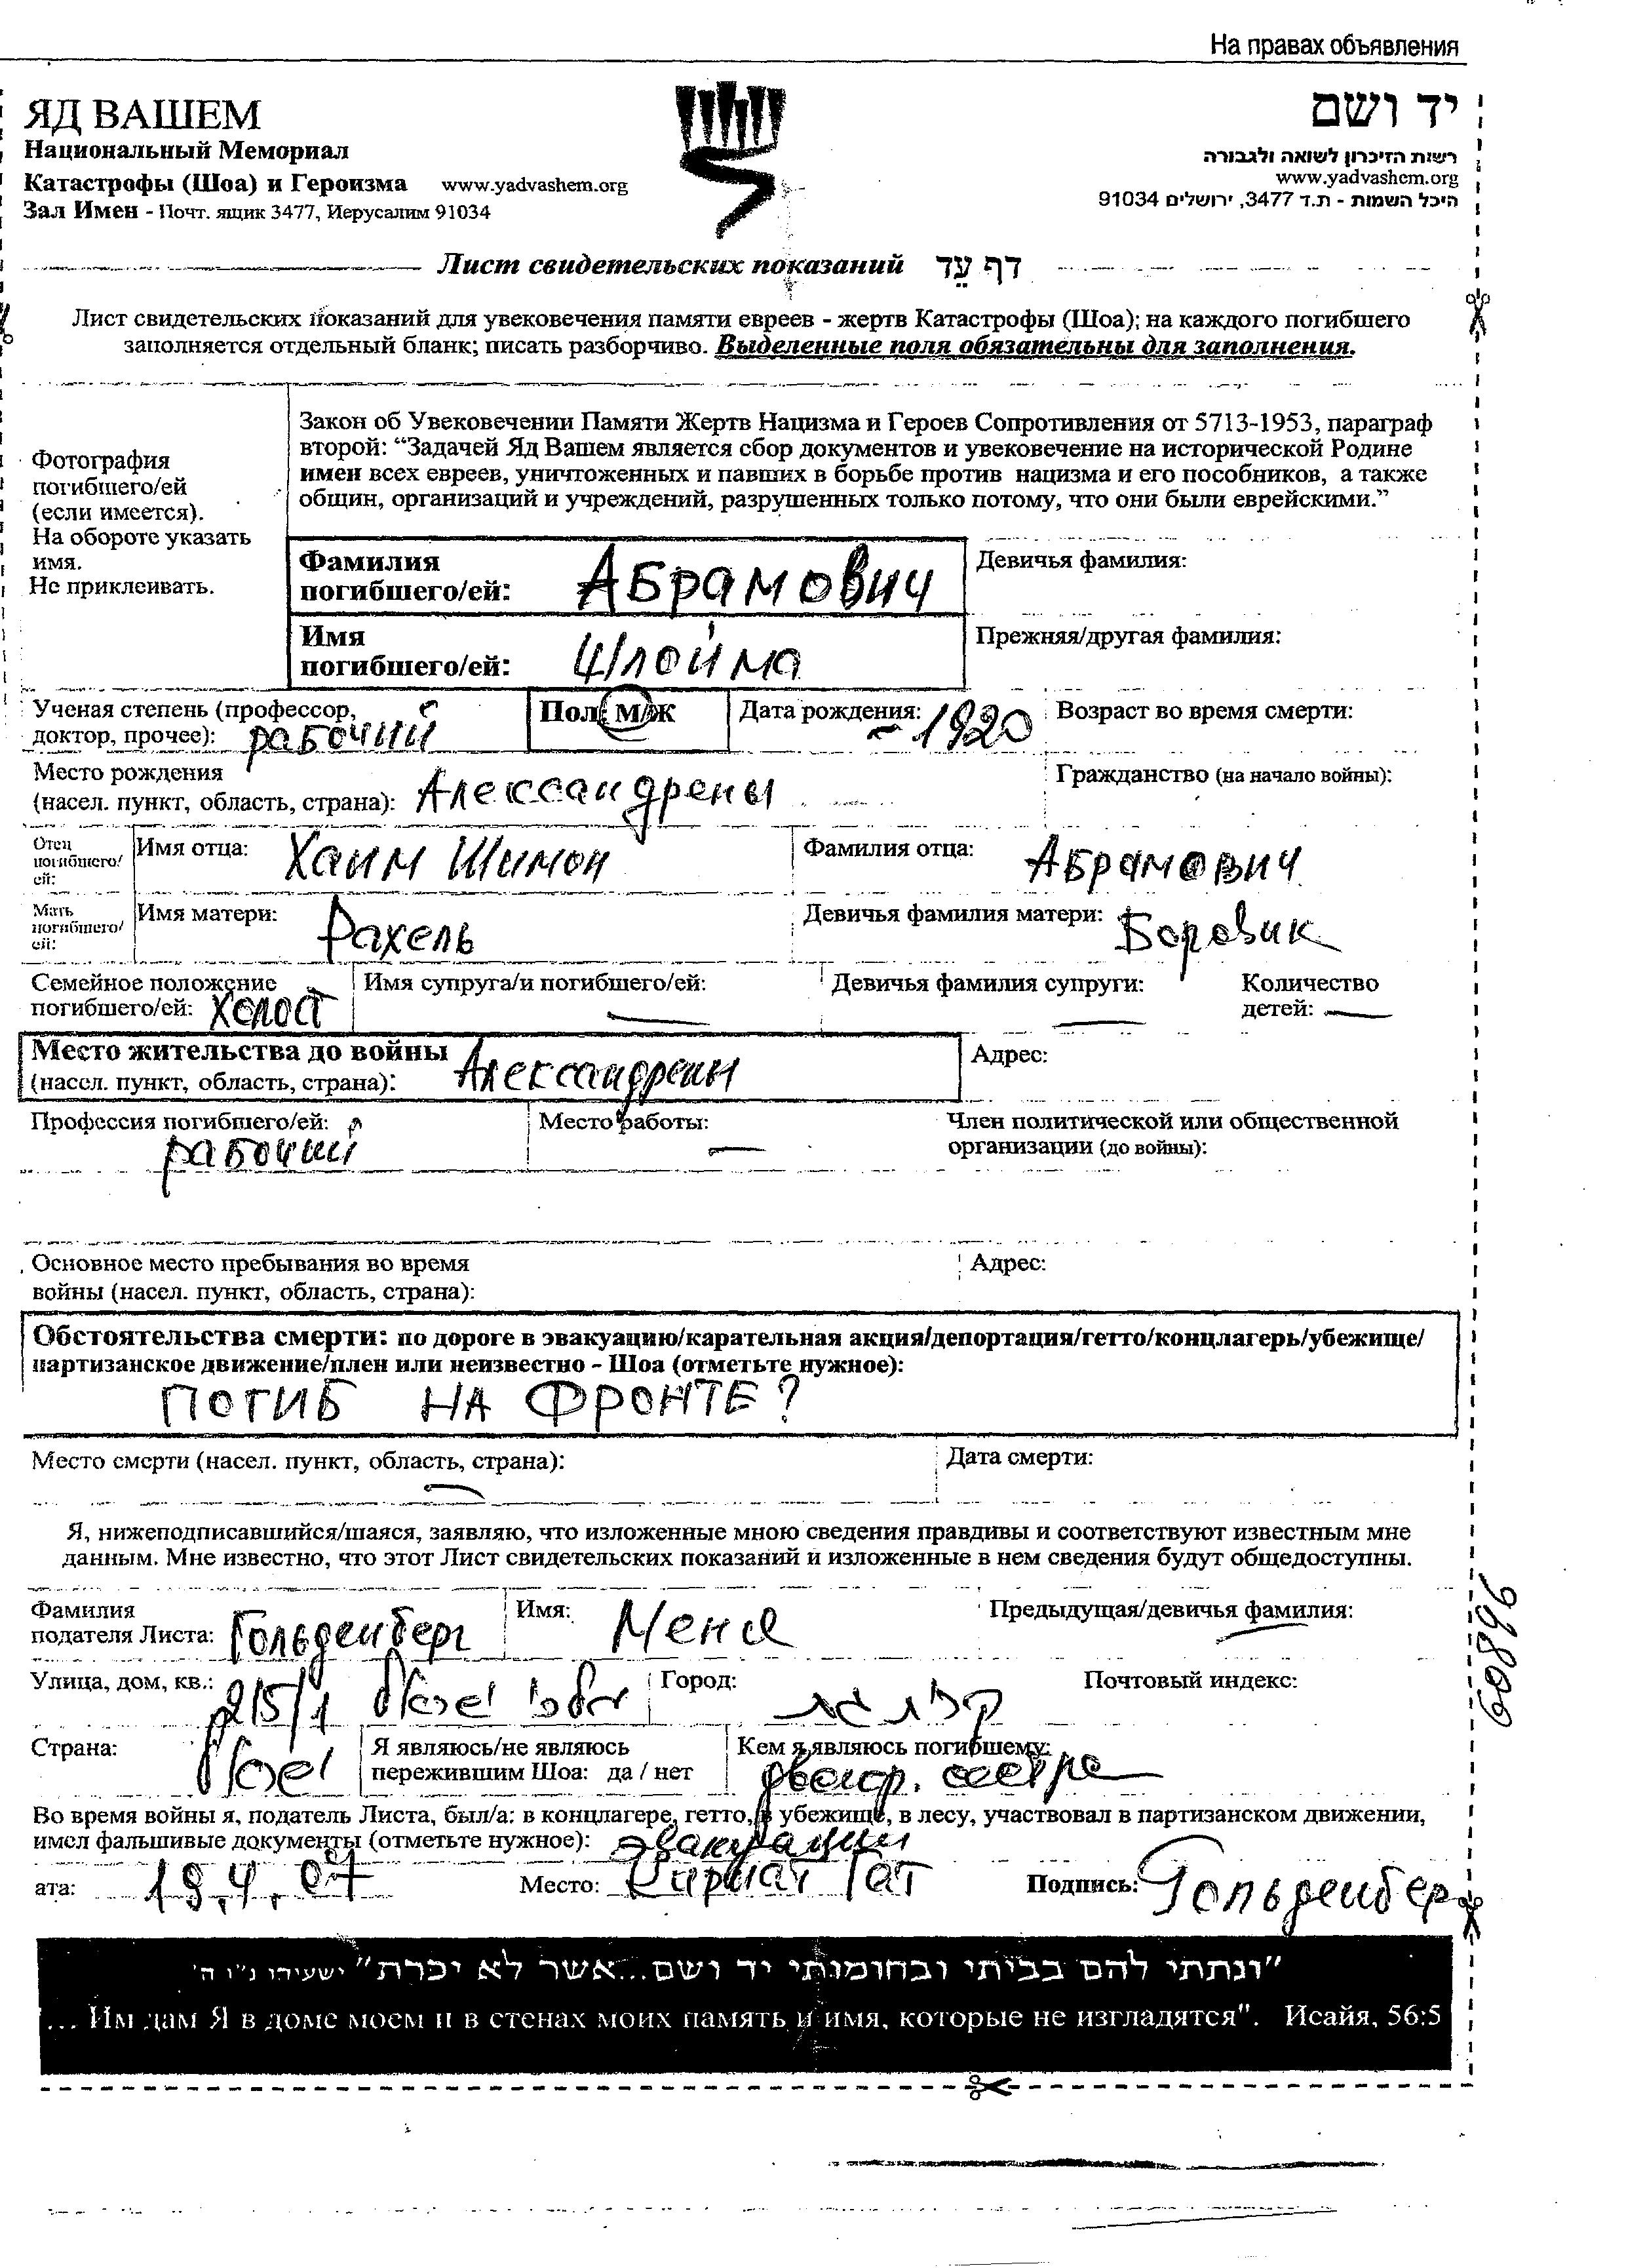 На правах объявления
ЯД ВАШЕМ
Национальный Мемориал
Катастрофы (Шоа) и Героизма www.yadvashem.org
Зал Имен - Почт. ящик 3477, Иерусалим 91034
יד ושם
רשות הזיכרון לשואה ולגבורה
www.yadvashem.org
היכל השמות - ת.ד 3477, ירושלים 91034
Лист свидетельских показаний דף עֵד
Лист свидетельских показаний для увековечения памяти евреев - жертв Катастрофы (Шоа); на каждого погибшего
заполняется отдельный бланк; писать разборчиво. Выделенные поля обязательны для заполнения.
Фотография
погибшего/ей
(если имеется).
На обороте указать
имя.
Не приклеивать.
Закон об Увековечении Памяти Жертв Нацизма и Героев Сопротивления от 5713-1953, параграф
второй: “Задачей Яд Вашем является сбор документов и увековечение на исторической Родине
имен всех евреев, уничтоженных и павших в борьбе против нацизма и его пособников, а также
общин, организаций и учреждений, разрушенных только потому, что они были еврейскими.”
Фамилия
погибшего/ей: Абрамович
Девичья фамилия:
Имя
погибшего/ей: Шлойма
Прежняя/другая фамилия:
Ученая степень (профессор,
доктор, прочее): рабочий
Пол: М/Ж
Дата рождения: ~1920
Возраст во время смерти:
Место рождения
(насел. пункт, область, страна): Александрены
Гражданство (на начало войны):
Отец
погибшего/
ей:
Имя отца: Хаим Шимон
Фамилия отца: Абрамович
Мать
погибшего/
ей:
Имя матери: Рахель
Девичья фамилия матери: Боровик
Семейное положение
погибшего/ей: холост
Имя супруга/и погибшего/ей: —
Девичья фамилия супруги: —
Количество
детей: —
Место жительства до войны
(насел. пункт, область, страна): Александрены
Адрес:
Профессия погибшего/ей:
рабочий
Место работы:
—
Член политической или общественной
организации (до войны):
Основное место пребывания во время
войны (насел. пункт, область, страна):
Адрес:
Обстоятельства смерти: по дороге в эвакуацию/карательная акция/депортация/гетто/концлагерь/убежище/
партизанское движение/плен или неизвестно - Шоа (отметьте нужное):
ПОГИБ НА ФРОНТЕ?
Место смерти (насел. пункт, область, страна):
—
Дата смерти:
Я, нижеподписавшийся/шаяся, заявляю, что изложенные мною сведения правдивы и соответствуют известным мне
данным. Мне известно, что этот Лист свидетельских показаний и изложенные в нем сведения будут общедоступны.
Фамилия
подателя Листа: Гольденберг
Имя: Меня
Предыдущая/девичья фамилия:
—
Улица, дом, кв.: 215/1
Город: קרית גת
Почтовый индекс:
Страна:
Я являюсь/не являюсь
пережившим Шоа: да / нет
Кем я являюсь погибшему:
двоюр. сестра
Во время войны я, податель Листа, был/а: в концлагере, гетто, в убежище, в лесу, участвовал в партизанском движении,
имел фальшивые документы (отметьте нужное): эвакуации
ата: 19.4.07 Место: Кириат Гат Подпись: Гольденберг
60896
"ונתתי להם בביתי ובחומותי יד ושם...אשר לא יכרת" ישעיהו נ"ו ה'
... Им дам Я в доме моем и в стенах моих память и имя, которые не изгладятся". Исайя, 56:5